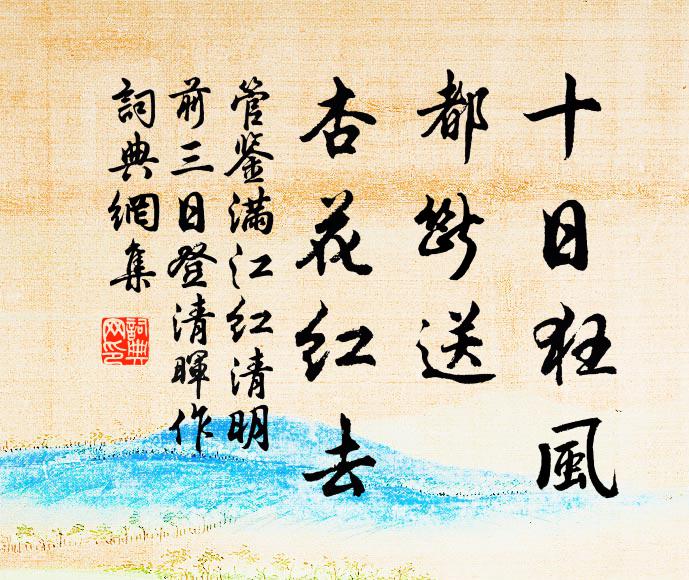 十日狂風
都斷送
杏花紅去
管鉴滿江紅清明
前三日登清暉作
詞典網集
詞典网印